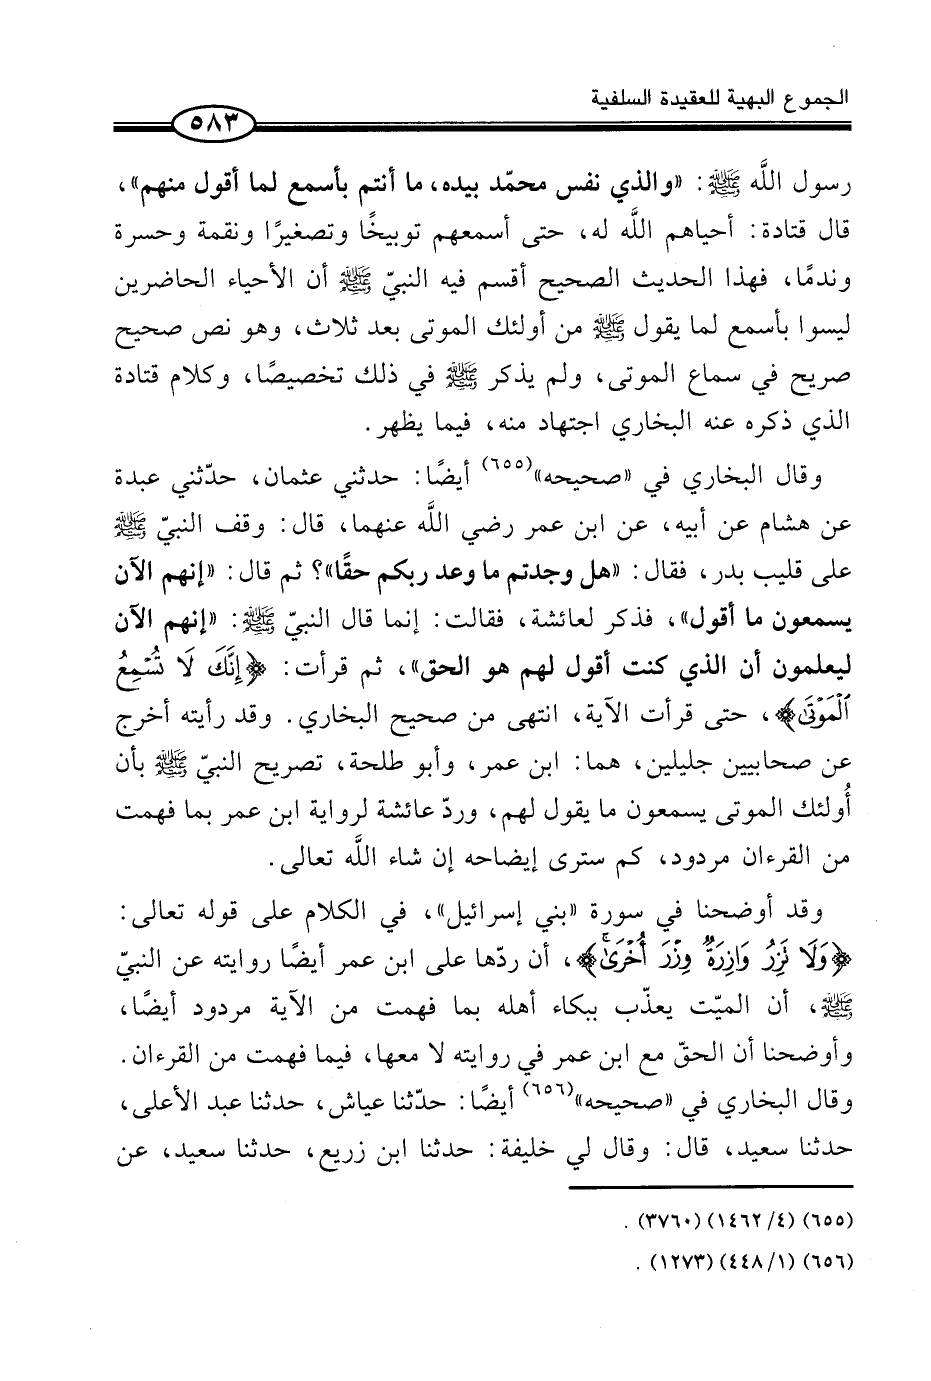 الجموع البهية للعقيدة السلفية
٥٨٣
رسول اللَّه ﷺ: «والذي نفس محمّد بيده، ما أنتم بأسمع لما أقول منهم»،
قال قتادة: أحياهم اللَّه له، حتى أسمعهم توبيخًا وتصغيرًا ونقمة وحسرة
وندمًا، فهذا الحديث الصحيح أقسم فيه النبيّ ﷺ أن الأحياء الحاضرين
ليسوا بأسمع لما يقول ﷺ من أولئك الموتى بعد ثلاث، وهو نص صحيح
صريح في سماع الموتى، ولم يذكر ﷺ في ذلك تخصيصًا، وكلام قتادة
الذي ذكره عنه البخاري اجتهاد منه، فيما يظهر.
وقال البخاري في «صحيحه»(٦٥٥) أيضًا: حدثني عثمان، حدّثني عبدة
عن هشام عن أبيه، عن ابن عمر رضي اللَّه عنهما، قال: وقف النبيّ ﷺ
على قليب بدر، فقال: «هل وجدتم ما وعد ربكم حقًا»؟ ثم قال: «إنهم الآن
يسمعون ما أقول»، فذكر لعائشة، فقالت: إنما قال النبيّ ﷺ: «إنهم الآن
ليعلمون أن الذي كنت أقول لهم هو الحق»، ثم قرأت: ﴿إِنَّكَ لَا تُسْمِعُ
ٱلْمَوْتَىٰ﴾، حتى قرأت الآية، انتهى من صحيح البخاري. وقد رأيته أخرج
عن صحابيين جليلين، هما: ابن عمر، وأبو طلحة، تصريح النبيّ ﷺ بأن
أُولئك الموتى يسمعون ما يقول لهم، وردّ عائشة لرواية ابن عمر بما فهمت
من القرءان مردود، كم سترى إيضاحه إن شاء اللَّه تعالى.
وقد أوضحنا في سورة «بني إسرائيل»، في الكلام على قوله تعالى:
﴿وَلَا تَزِرُ وَازِرَةٌ وِزْرَ أُخْرَىٰۚ﴾، أن ردّها على ابن عمر أيضًا روايته عن النبيّ
ﷺ، أن الميّت يعذّب ببكاء أهله بما فهمت من الآية مردود أيضًا،
وأوضحنا أن الحقّ مع ابن عمر في روايته لا معها، فيما فهمت من القرءان.
وقال البخاري في «صحيحه»(٦٥٦) أيضًا: حدّثنا عياش، حدثنا عبد الأعلى،
حدثنا سعيد، قال: وقال لي خليفة: حدثنا ابن زريع، حدثنا سعيد، عن
(٦٥٥) (١٤٦٢/٤) (٣٧٦٠).
(٦٥٦) (٤٤٨/١) (١٢٧٣).